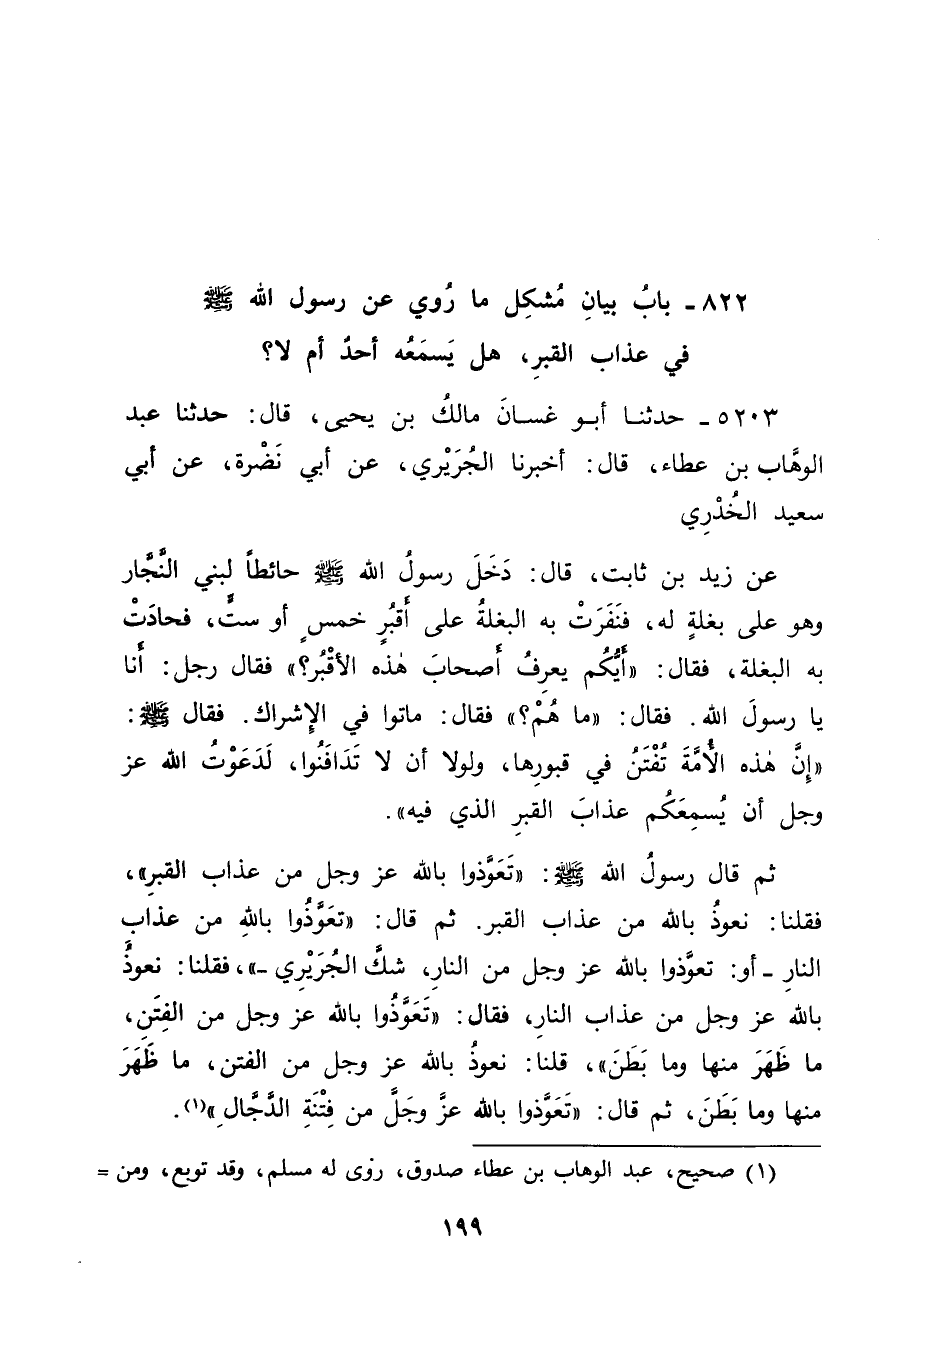 ٨٢٢ ـ بابُ بيانِ مُشكِل ما رُوي عن رسول الله ﷺ
في عذاب القبرِ، هل يَسمَعُه أحدٌ أم لا؟
٥٢٠٣ ـ حدثنا أبو غسانَ مالكُ بن يحيى، قال: حدثنا عبد
الوهَّاب بن عطاء، قال: أخبرنا الجُرَيْري، عن أبي نَضْرة، عن أبي
سعيد الخُدْرِي
عن زيد بن ثابت، قال: دَخَلَ رسولُ الله ﷺ حائطاً لبني النَّجَّار
وهو على بغلةٍ له، فنَفَرَتْ به البغلةُ على أَقبُرٍ خمسٍ أو ستٍّ، فحادَتْ
به البغلة، فقال: «أَيُّكم يعرِفُ أَصحابَ هٰذه الأقْبُر؟» فقال رجل: أَنا
يا رسولَ الله. فقال: «ما هُمْ؟» فقال: ماتوا في الإِشراك. فقال ﷺ:
«إِنَّ هٰذه الأُمَّةَ تُفْتَنُ في قبورِها، ولولا أن لا تَدَافَنُوا، لَدَعَوْتُ الله عز
وجل أن يُسمِعَكُم عذابَ القبرِ الذي فيه».
ثم قال رسولُ الله ﷺ: «تَعَوَّذوا بالله عز وجل من عذاب القبرِ»،
فقلنا: نعوذُ بالله من عذاب القبر. ثم قال: «تعَوَّذُوا باللهِ من عذابِ
النارِ ـ أو: تعوَّذوا بالله عز وجل من النارِ، شكَّ الجُرَيْرِي ـ»، فقلنا: نعوذُ
بالله عز وجل من عذاب النارِ، فقال: «تَعَوَّذُوا بالله عز وجل من الفِتَنِ،
ما ظَهَرَ منها وما بَطَنَ»، قلنا: نعوذُ بالله عز وجل من الفتن، ما ظَهَرَ
منها وما بَطَنَ، ثم قال: «تَعَوَّذوا بالله عزَّ وجَلَّ من فِتْنَةِ الدَّجَّالِ»(١).
(١) صحيح، عبد الوهاب بن عطاء صدوق، روى له مسلم، وقد توبع، ومن =
١٩٩